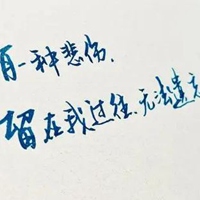 有一种悲伤，
留在我过往，无法遗忘